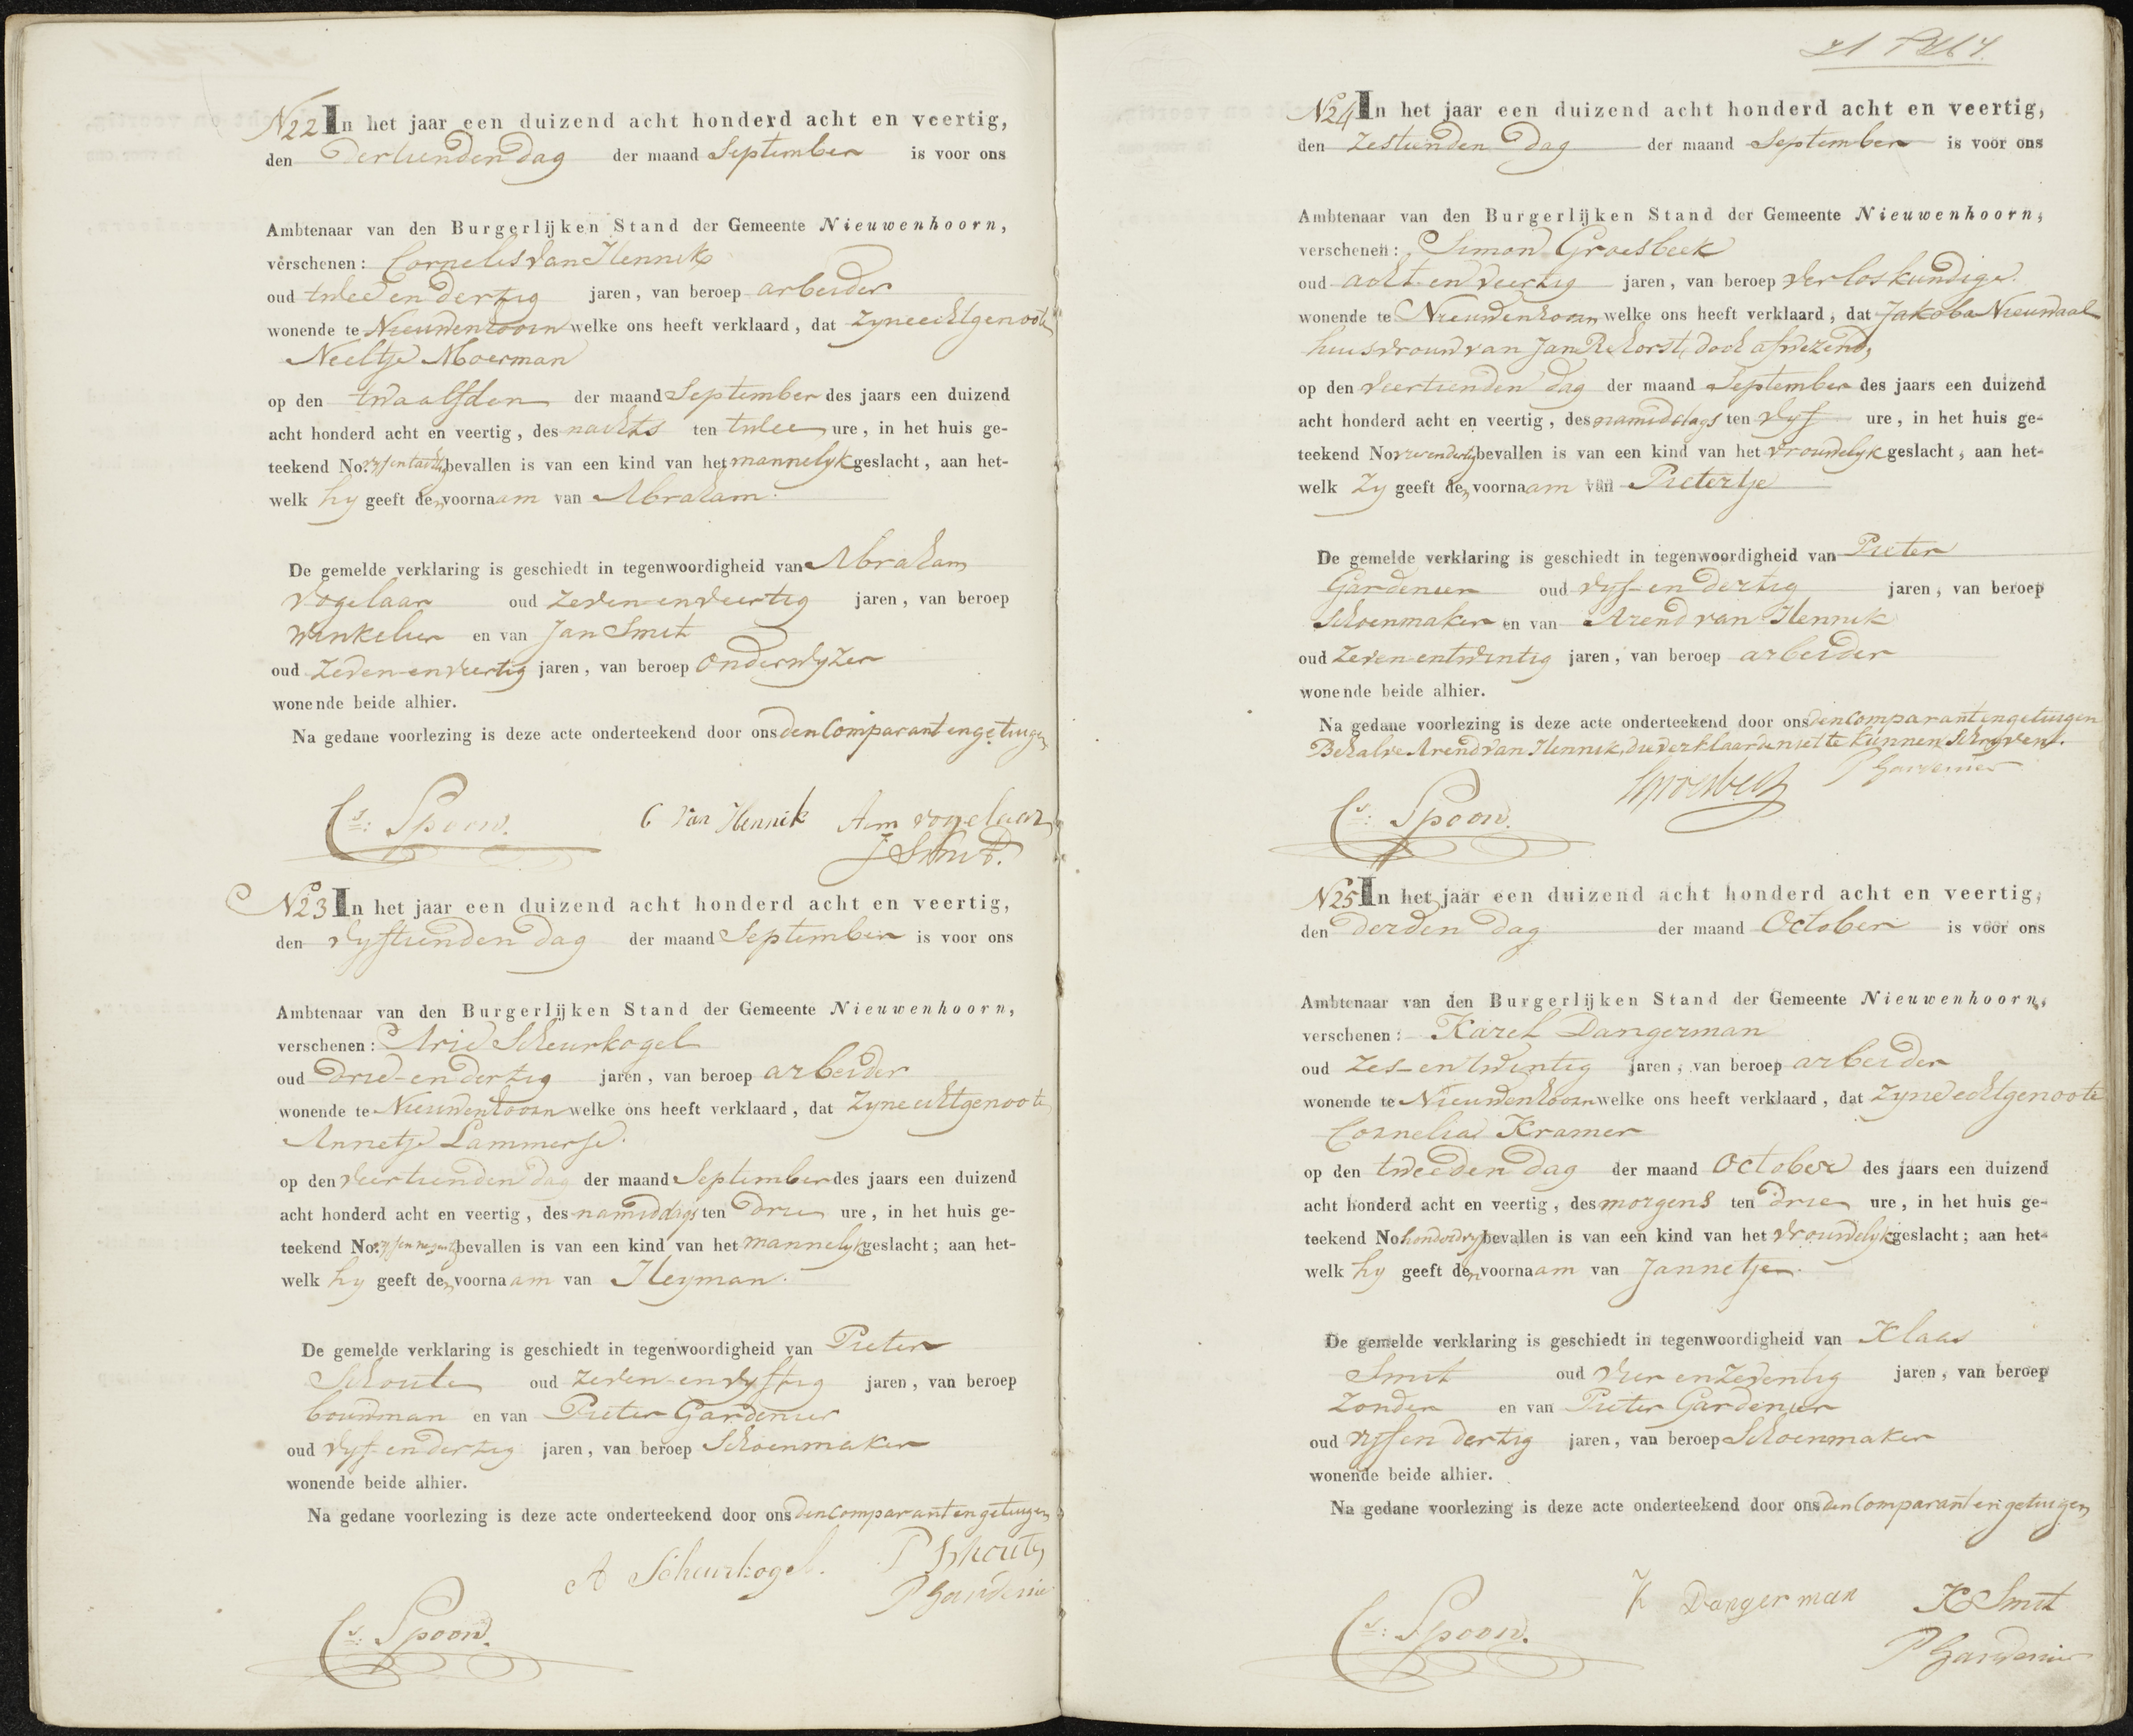 N22 In het jaar een duizend acht honderd acht en veertig,
den Dertienden dag der maand September is voor ons
Ambtenaar van den Burgerlijken Stand der Gemeente Nieuwenhoorn,
verschenen: Cornelis van Hennik
oud twee en dertig jaren, van beroep arbeider
wonende te Nieuwenhoorn welke ons heeft verklaard, dat zyne echtgenoote
Neeltje Moerman
op den twaalfden der maand September des jaars een duizend
acht honderd acht en veertig, des nachts ten twee ure, in het huis ge-
teekend No. vyfentachtig bevallen is van een kind van het mannelyk geslacht, aan het-
welk hy geeft den voornaam van Abraham.
De gemelde verklaring is geschiedt in tegenwoordigheid van Abraham
Vogelaar oud zeven en veertig jaren, van beroep
winkelier en van Jan Smit
oud zeven en veertig jaren, van beroep onderwyzer
wonende beide alhier.
Na gedane voorlezing is deze acte onderteekend door ons den Comparant en getuigen
Cs: Spoon. C van Hennik Am vogelaar
J Smit.
N23 In het jaar een duizend acht honderd acht en veertig,
den vyftienden dag der maand September is voor ons
Ambtenaar van den Burgerlijken Stand der Gemeente Nieuwenhoorn,
verschenen: Arie Scheurkogel
oud drie en dertig jaren, van beroep arbeider
wonende te Nieuwenhoorn welke ons heeft verklaard, dat zyne echtgenoote
Annetje Lammerse.
op den veertienden dag der maand September des jaars een duizend
acht honderd acht en veertig, des namiddags ten drie ure, in het huis ge-
teekend No. vyfennegentig bevallen is van een kind van het mannelyk geslacht; aan het-
welk hy geeft den voornaam van Heyman.
De gemelde verklaring is geschiedt in tegenwoordigheid van Pieter
Schoute oud zeven en vyftig jaren, van beroep
bouwman en van Pieter Gardenier
oud vyf en dertig jaren, van beroep Schoenmaker
wonende beide alhier.
Na gedane voorlezing is deze acte onderteekend door ons den Comparant en getuigen
A Scheurkogel. P Schoute
P Gardenier
Cs: Spoon.
N24 In het jaar een duizend acht honderd acht en veertig,
den zestienden dag der maand September is voor ons
Ambtenaar van den Burgerlijken Stand der Gemeente Nieuwenhoorn,
verschenen: Simon Groesbeek
oud acht en veertig jaren, van beroep verloskundige
wonende te Nieuwenhoorn welke ons heeft verklaard, dat Jakoba Nieuwaal
huisvrouw van Jan Rehorst, doch afwezend,
op den veertienden dag der maand September des jaars een duizend
acht honderd acht en veertig, des namiddags ten vyf ure, in het huis ge-
teekend No vierendertig bevallen is van een kind van het vrouwelyk geslacht, aan het-
welk zy geeft den voornaam van Pietertje
De gemelde verklaring is geschiedt in tegenwoordigheid van Pieter
Gardenier oud vyf en dertig jaren, van beroep
Schoenmaker en van Arend van Hennik
oud zeven en twintig jaren, van beroep arbeider
wonende beide alhier.
Na gedane voorlezing is deze acte onderteekend door ons den Comparant en getuigen
Behalve Arend van Hennik, die verklaarde niet te kunnen schryven.
SGroesbeek P Gardenier
Cs: Spoon.
N25 In het jaar een duizend acht honderd acht en veertig,
den derden dag der maand October is voor ons
Ambtenaar van den Burgerlijken Stand der Gemeente Nieuwenhoorn,
verschenen: Karel Dangerman
oud zes en twintig jaren, van beroep arbeider
wonende te Nieuwenhoorn welke ons heeft verklaard, dat zyne echtgenoote
Cornelia Kramer
op den tweeden dag der maand October des jaars een duizend
acht honderd acht en veertig, des morgens ten drie ure, in het huis ge-
teekend No honderddry bevallen is van een kind van het vrouwelyk geslacht; aan het-
welk hy geeft den voornaam van Jannetje.
De gemelde verklaring is geschiedt in tegenwoordigheid van Klaas
Smit oud vier en zeventig jaren, van beroep
zonder en van Pieter Gardenier
oud vyf en dertig jaren, van beroep Schoenmaker
wonende beide alhier.
Na gedane voorlezing is deze acte onderteekend door ons den Comparant en getuigen
K Dangerman K Smit
Cs: Spoon. P Gardenier